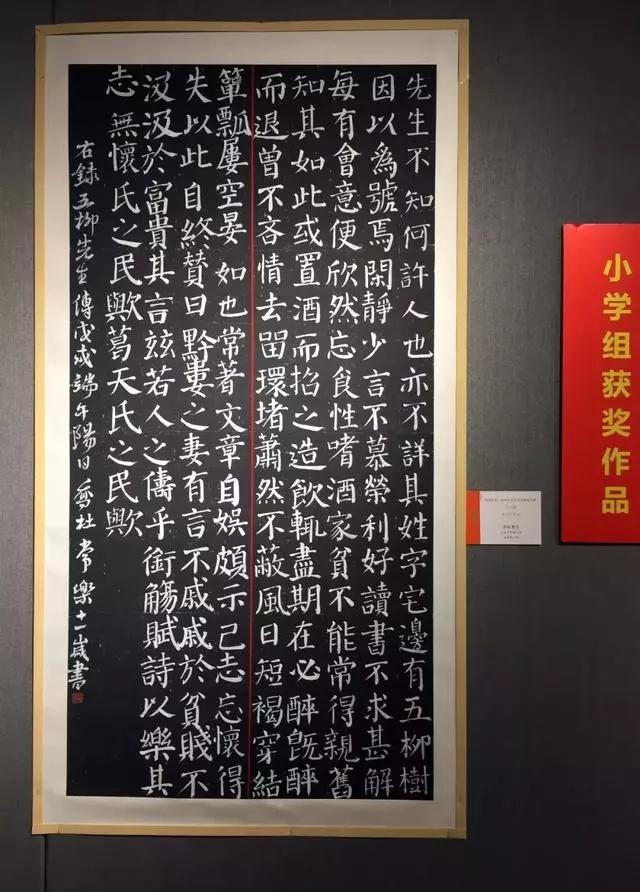 先生不知何許人也亦不詳其姓字宅邊有五柳樹
因以爲號焉閑靜少言不慕榮利好讀書不求甚解
每有會意便欣然忘食性嗜酒家貧不能常得親舊
知其如此或置酒而招之造飲輒盡期在必醉既醉
而退曾不吝情去留環堵蕭然不蔽風日短褐穿結
簞瓢屢空晏如也常著文章自娛頗示己志忘懷得
失以此自終贊曰黔婁之妻有言不戚戚於貧賤不
汲汲於富貴其言玆若人之儔乎銜觴賦詩以樂其
志無懷氏之民歟葛天氏之民歟
右錄五柳先生傳戊戌端午陽日社常樂十一歲書
小学组获奖作品